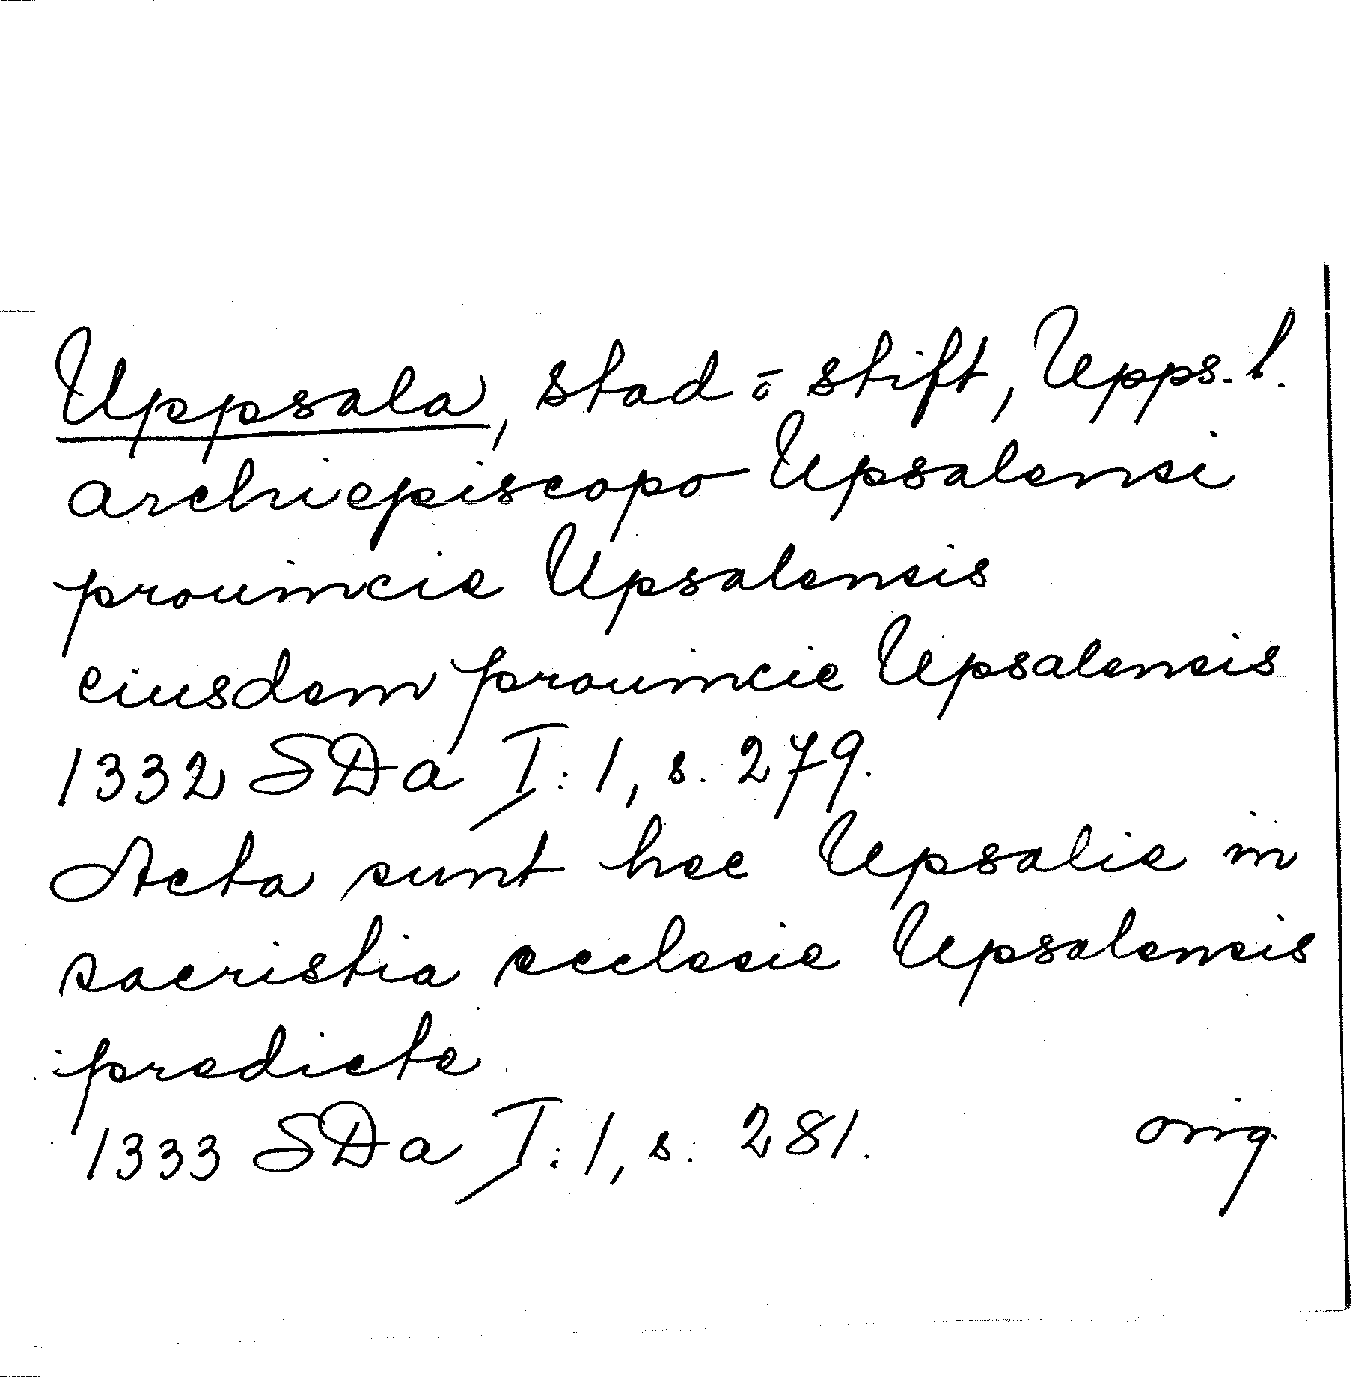 Uppsala, stad o stift, Upps. l.
archiepiscopo Upsalensi
prouincie Upsalensis
eiusdem prouincie Upsalensis
1332 SDa I:1, s. 279.
Acta sunt hec Upsalie in
sacristia ecclesie Upsalensis
predicte
1333 SDa I:1, s. 281. orig